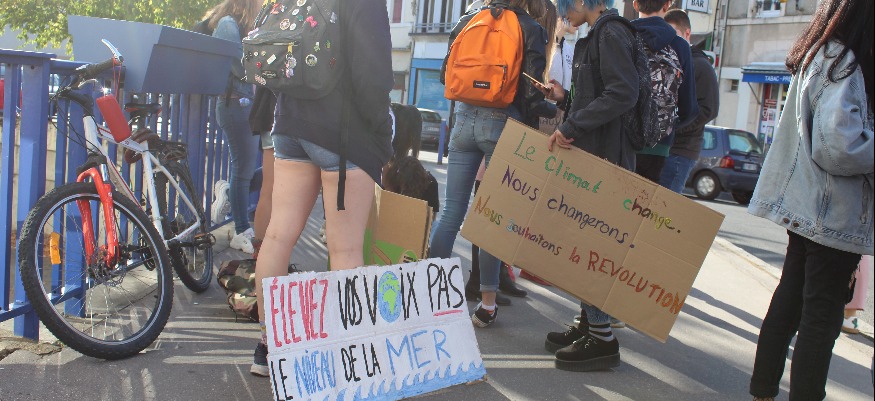 ÉLEVEZ VOS VOIX PAS
LE NIVEAU DE LA MER
Le Climat change.
Nous changerons.
Nous souhaitons la REVOLUTION
BAR
TABAC
EASTPAK